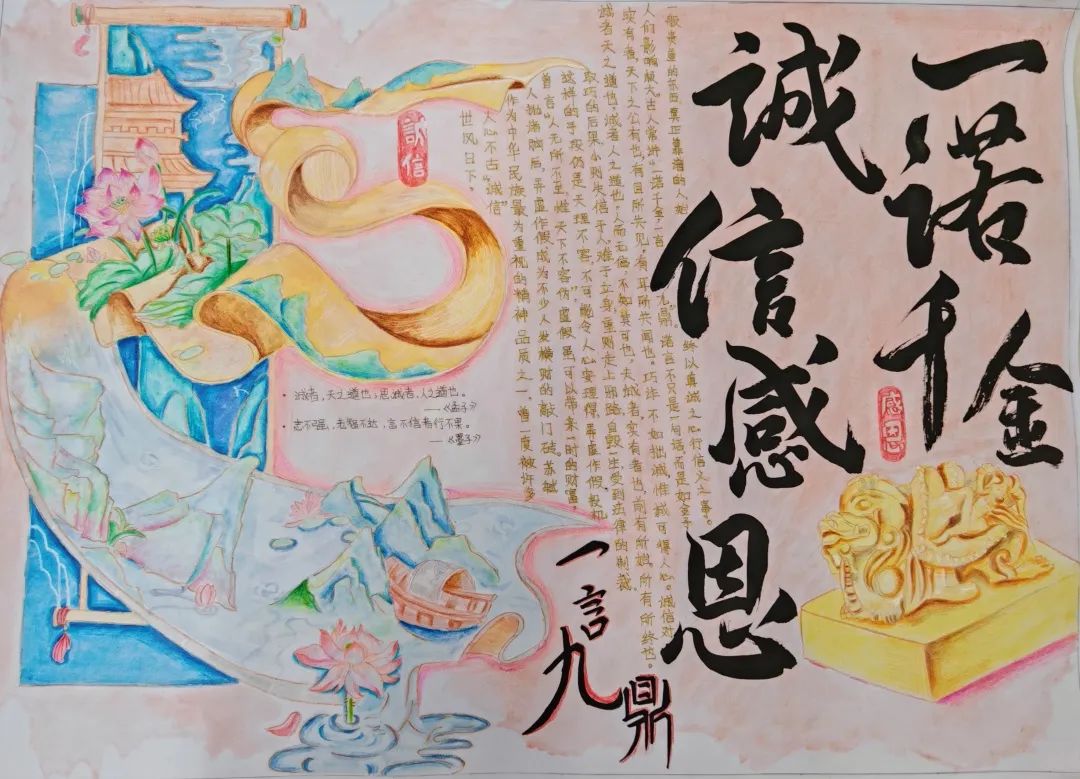 一诺千金
誠信感恩
感恩
誠信
世风日下。
人心不古"诚信"
作为中华民族最为重视的精神品质之一,曾一度被许多
人抛诸脑后,弄虚作假成为不少人发横财的敲门砖,苏轼
曾言"人无所不至,惟天下不容伪"虚假虽可以带来一时的财富,
这样的手段仍是天理不容,不可能令人心安理得,弄虚作假投机
取巧的后果,小则失信于人,难于立身,重则走上邪路,自毁一生,受到法律的制裁。
诚者天之道也,诚者人之道也,人而无信,不知其可也。夫诚者,实有者也,前有所始,所有所终也。
实有者,天下之公有也,有目所共见,有耳所共闻也。巧诈不如拙诚,惟诚可得人心。诚信对
人们影响颇大古人常讲"一诺千金一言九鼎。诺言不只是一句话,而是如金子
一般贵重的东西,真正靠谱的人,始终以真诚之心行信义之事。
· 诚者,天之道也;思诚者,人之道也。
——《孟子》
· 志不强,者智不达,言不信者行不果。
——《墨子》
一言九鼎